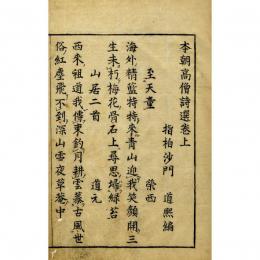 本朝高僧詩選卷上
指柏沙門 道熙編
至天童 榮西
海外精藍特特來青山迎我笑顏開三
生未朽梅花骨石上尋思埽綠苔
山居二首 道元
西來祖道我傳東釣月耕雲慕古風世
俗紅塵飛不到深山雪夜草菴中